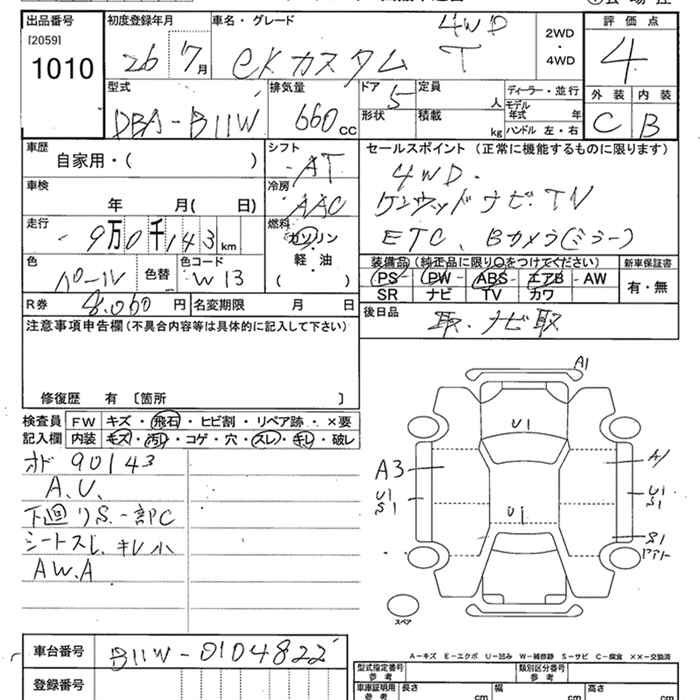 出品番号
[2059]
1010
初度登録年月
26 7月
車名・グレード
eKカスタム T
4WD
2WD
・
4WD
評価点
4
型式
DBA-B11W
排気量
660cc
ドア 5
形状
定員 人
積載 kg
ディーラー・並行
モデル年式 年
ハンドル 左・右
外装 内装
C B
車歴
自家用・( )
シフト
AT
セールスポイント (正常に機能するものに限ります)
4WD.
ケンウッドナビ・TV
ETC、Bカメラ(ミラー)
車検
年 月( 日)
冷房
AAC
走行
9万0千143km
燃料
ガソリン
軽・油
( )
色
パール
色替
色コード
W13
R券 8.060円
名変期限 月 日
装備品 (純正品に限り○をつけてください)
PS PW ABS エアB AW
SR ナビ TV カワ
新車保証書
有・無
後日品
取、ナビ取
注意事項申告欄 (不具合内容等は具体的に記入して下さい)
修復歴 有 〔箇所 〕
検査員 FW キズ・飛石・ヒビ割・リペア跡・×要
記入欄 内装 キズ・汚れ・コゲ・穴・スレ・キレ・破レ
オド 90143
A.U、
下廻りS.一部C
シートスレ キレ小
AW.A
A1
U1
A3
A1
U1
S1
U1
S1
U1
S1
スペア
A−キズ E−エクボ U−凹み W−補修跡 S−サビ C−腐食 ××−交換済
車台番号 B11W-0104822
登録番号
型式指定番号
参考
類別区分番号
参考
車庫証明用
参考
長さ cm
幅 cm
高さ cm